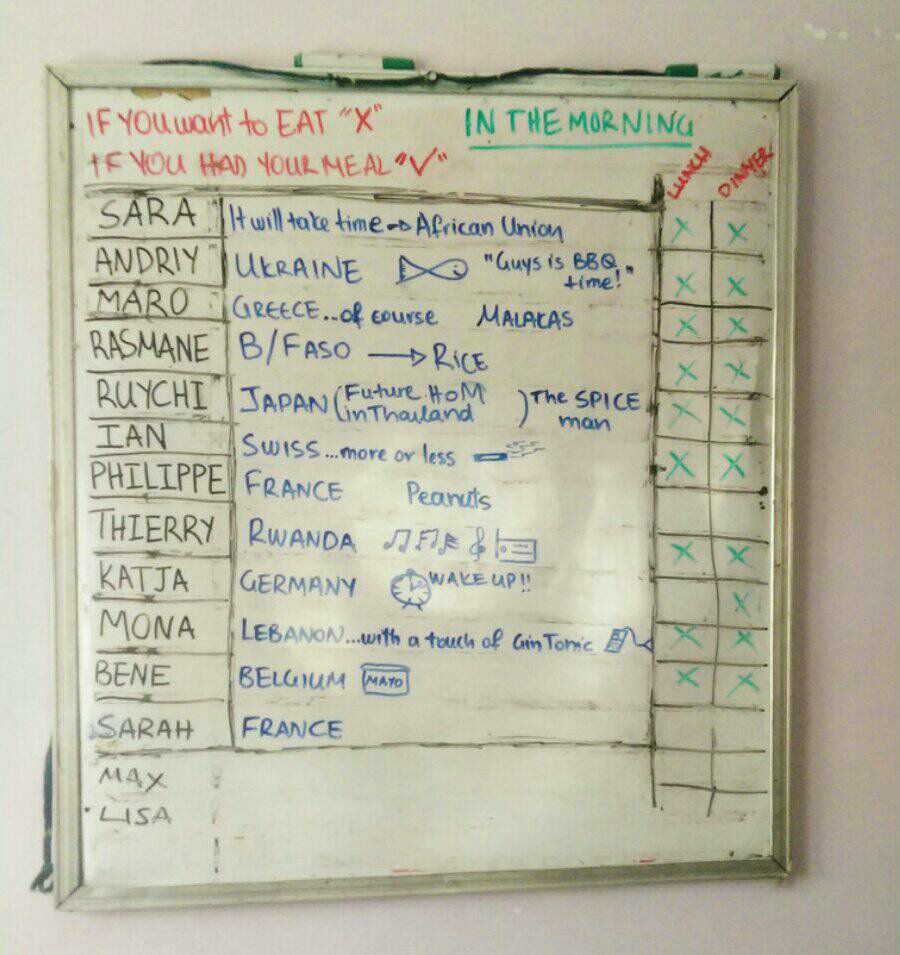 IF YOU want to EAT "X" IN THE MORNING
IF YOU HAD YOUR MEAL "V" LUNCH DINNER
SARA It will take time → African Union X X
ANDRIY UKRAINE "Guys is BBQ time!" X X
MARO GREECE...of course MALAKAS X X
RASMANE B/FASO → RICE X X
RUYCHI JAPAN (Future HoM in Thailand) The SPICE man X X
IAN SWISS...more or less X X
PHILIPPE FRANCE Peanuts
THIERRY RWANDA X X
KATJA GERMANY WAKE UP!! X
MONA LEBANON...with a touch of Gin Tonic X X
BENE BELGIUM MAYO X X
SARAH FRANCE
MAX
LISA